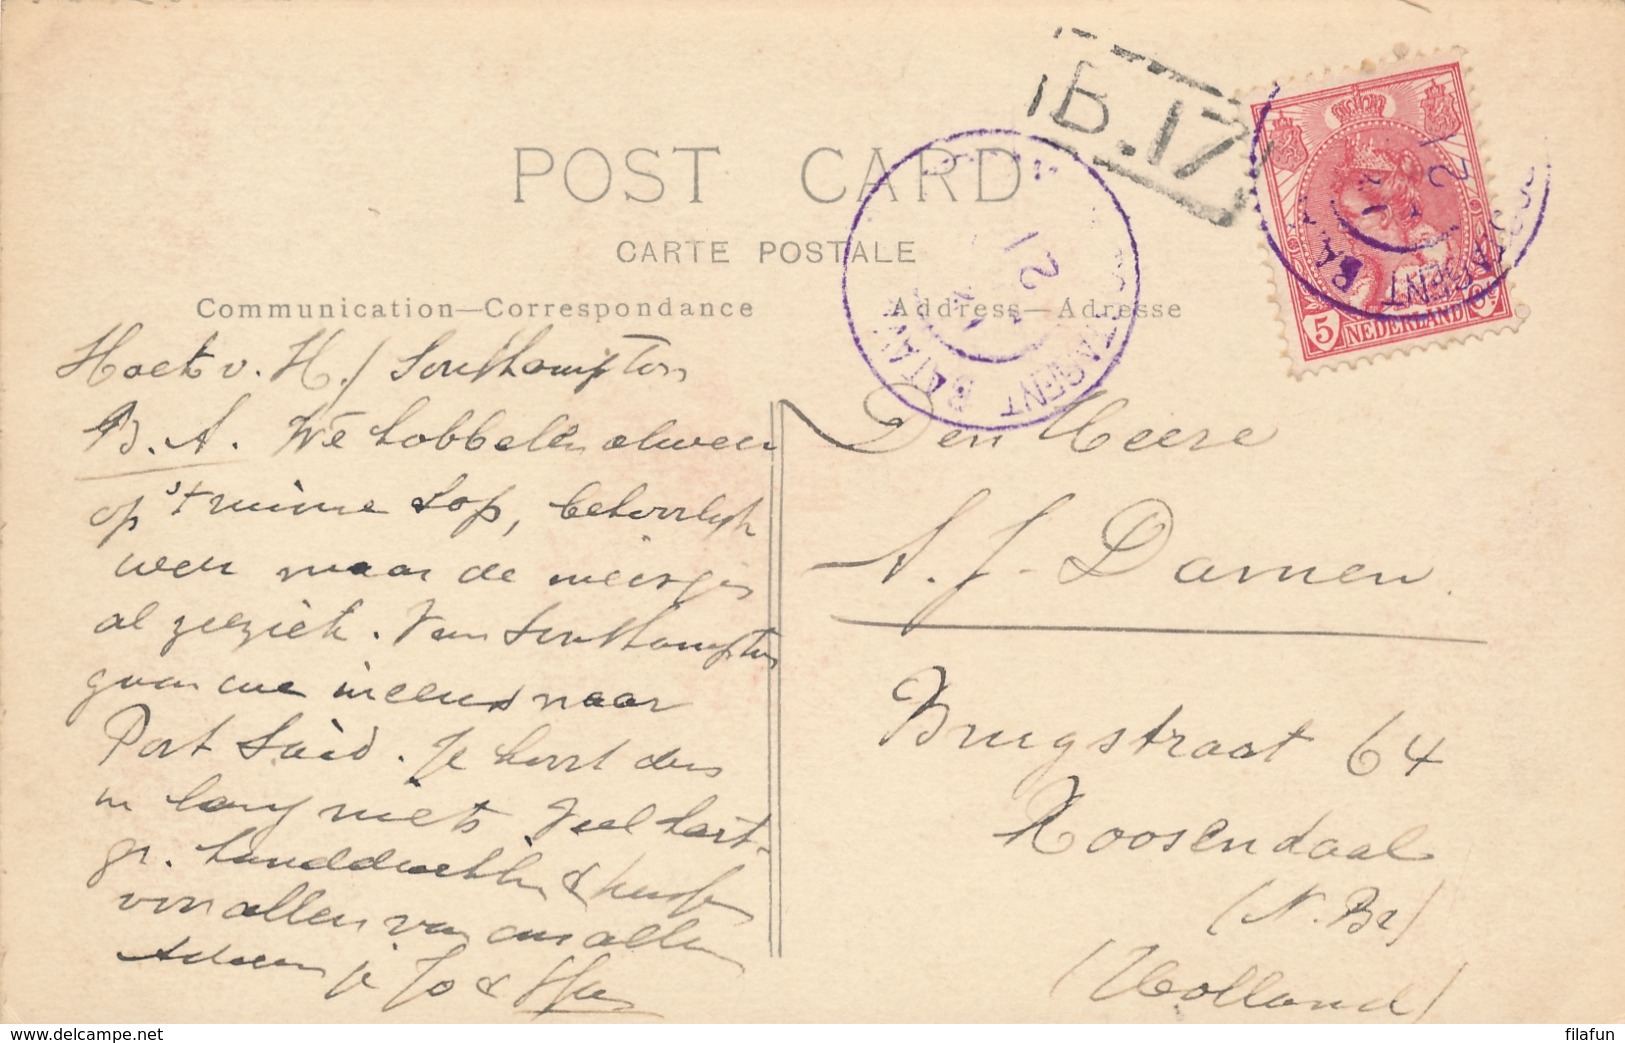 B.17
POST CARD
CARTE POSTALE
Communication—Correspondance
Address—Adresse
5 NEDERLAND Ct
POSTAGENT BATAV
POSTAGENT BATA
21
21
Hoek v. H./ Southampton
B.A. We hobbelen alweer
op 't ruime sop, behoorlijk
weer maar de meisjes
al zeeziek. Van Southampton
gaan we ineens naar
Port Said. Je hoort dus
in lang niets. Veel hart.
gr. handdrukken &
von allen van ons allen
je Jo &
Den Heere
A. J. Damen
Brugstraat 64
Roosendaal
(N. Br)
(Holland)
delcampe.net
filafun